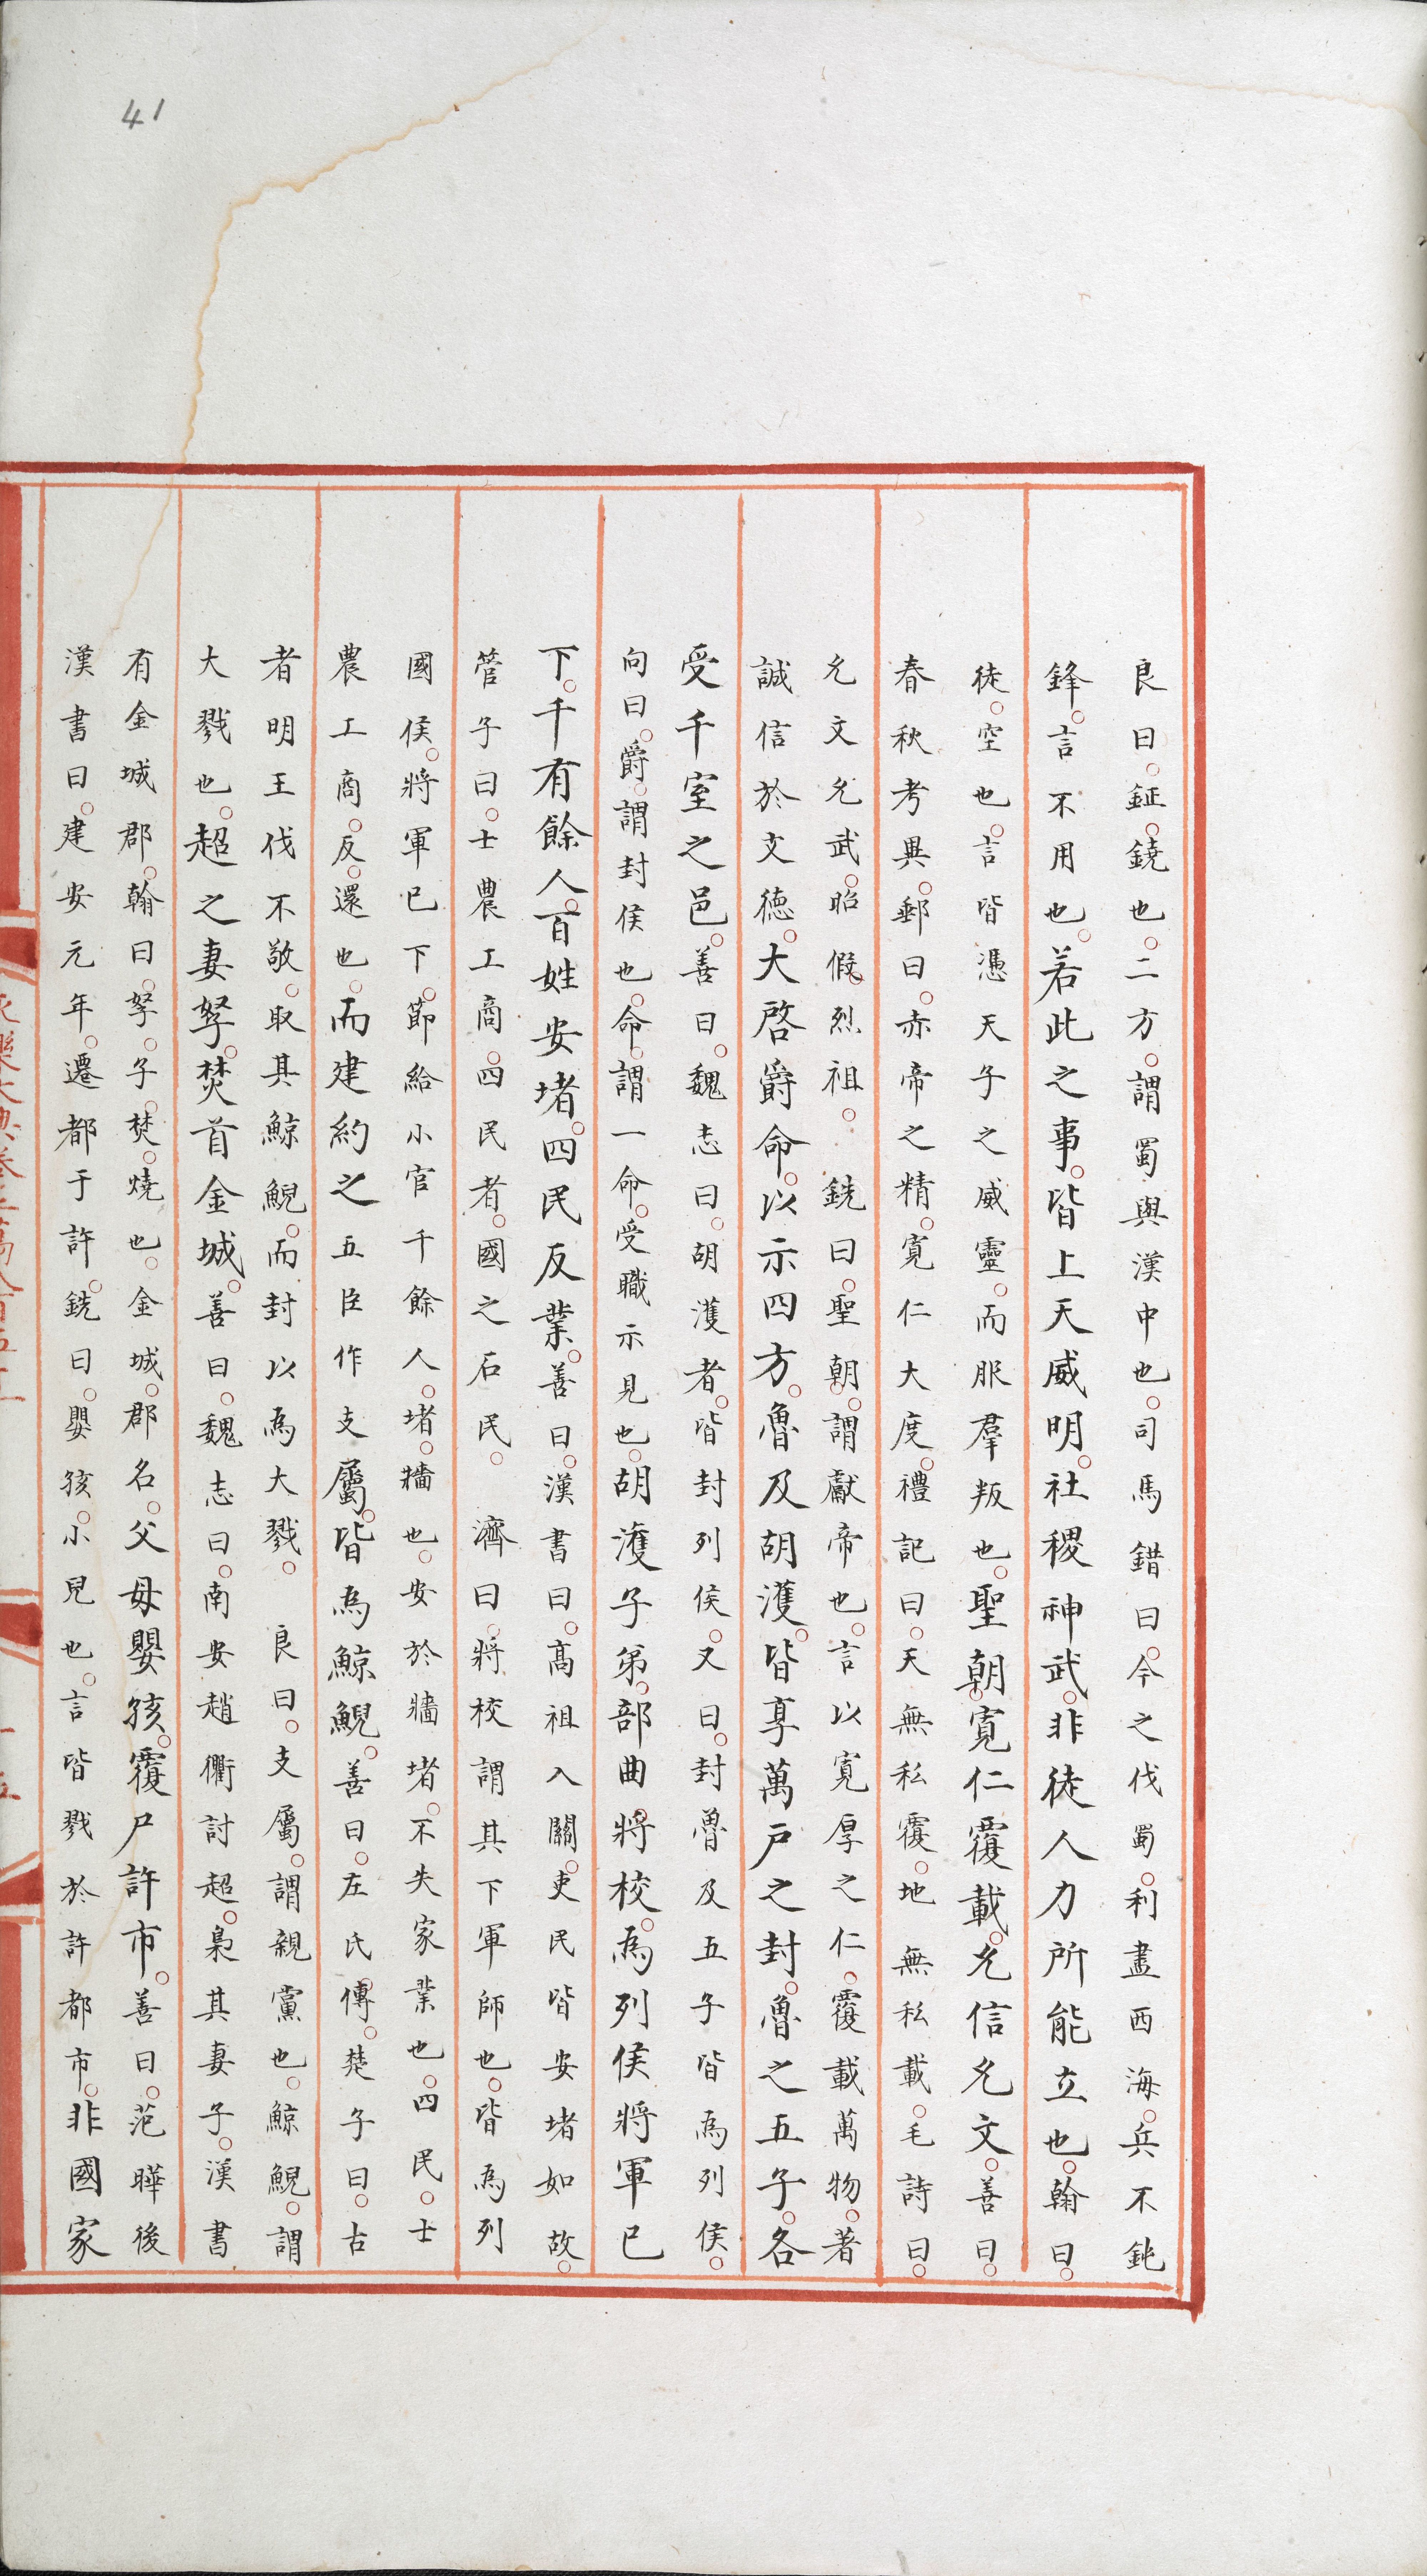 41
良曰鉦鐃也二方謂蜀與漢中也司馬錯曰今之伐蜀利盡西海兵不鈍
鋒言不用也若此之事皆上天威明社稷神武非徒人力所能立也翰曰
徒空也言皆憑天子之威靈而服羣叛也聖朝寬仁覆載允信允文善曰
春秋考異郵曰赤帝之精寬仁大度禮記曰天無私覆地無私載毛詩曰
允文允武昭假烈祖 銑曰聖朝謂獻帝也言以寬厚之仁覆載萬物著
誠信於文德大啓爵命以示四方魯及胡濩皆享萬戶之封魯之五子各
受千室之邑善曰魏志曰胡濩者皆封列侯又曰封魯及五子皆為列侯
向曰爵謂封侯也命謂一命受職示見也胡濩子弟部曲將校為列侯將軍已
下千有餘人百姓安堵四民反業善曰漢書曰高祖入關吏民皆安堵如故
管子曰士農工商四民者國之石民 濟曰將校謂其下軍師也皆為列
國侯將軍已下節給小官千餘人堵牆也安於牆堵不失家業也四民士
農工商反還也而建約之五臣作支屬皆為鯨鯢善曰左氏傳楚子曰古
者明王伐不敬取其鯨鯢而封以為大戮 良曰支屬謂親黨也鯨鯢謂
大戮也超之妻孥焚首金城善曰魏志曰南安趙衢討超梟其妻子漢書
有金城郡翰曰孥子焚燒也金城郡名父母嬰孩覆尸許市善曰范曄後
漢書曰建安元年遷都于許銑曰嬰孩小兒也言皆戮於許都市非國家